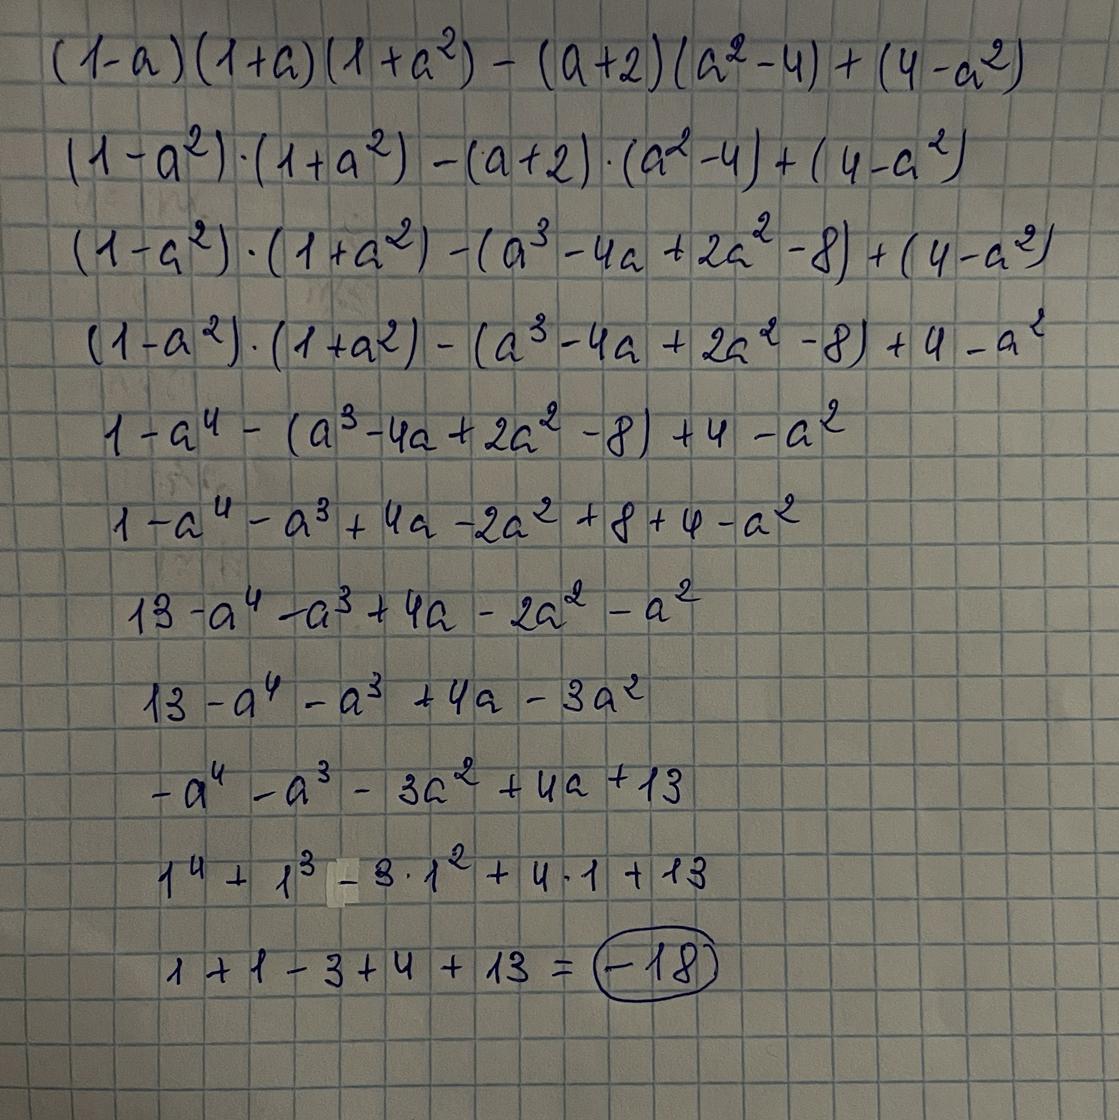 (1-a)(1+a)(1+a²) - (a+2)(a²-4) + (4-a²)
(1-a²)·(1+a²) -(a+2)·(a²-4)+(4-a²)
(1-a²)·(1+a²) -(a³-4a+2a²-8)+(4-a²)
(1-a²)·(1+a²) - (a³-4a+2a²-8)+4-a²
1-a⁴- (a³-4a+2a²-8)+4-a²
1-a⁴-a³+4a-2a²+8+4-a²
13-a⁴-a³+4a-2a²-a²
13-a⁴-a³+4a-3a²
-a⁴-a³-3a²+4a+13
1⁴+1³-3·1²+4·1+13
1+1-3+4+13=-18